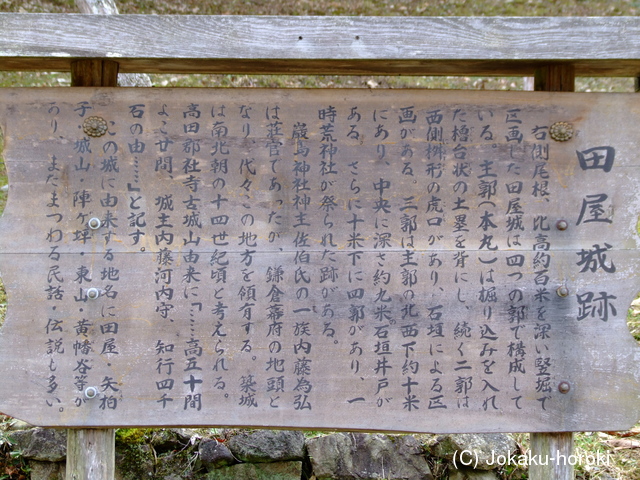 田屋城跡
右側尾根、比高約百米を深い竪堀で
区画した田屋城は四つの郭で構成して
いる。主郭(本丸)は掘り込みを入れ
た櫓台状の土塁を背にし、続く二郭は
西側桝形の虎口があり、石垣による区
画がある。三郭は主郭の北西下約十米
にあり、中央に深さ約九米石垣井戸が
ある。さらに十米下に四郭があり、一
時荒神社が祭られた跡がある。
厳島神社神主佐伯氏の一族内藤為弘
は荘官であったが、鎌倉幕府の地頭と
なり、代々この地方を領有する。築城
は南北朝の十四世紀頃と考えられる。
高田郡社寺古城山由来に「……高五十間
よこ廿間、城主内藤河内守、知行四千
石の由……」と記す。
この城に由来する地名に田屋・矢柏
子・城山・陣ケ坪・東山・黄幡谷等が
あり、まだまつわる民話・伝説も多い。
(C) Jokaku-horoki